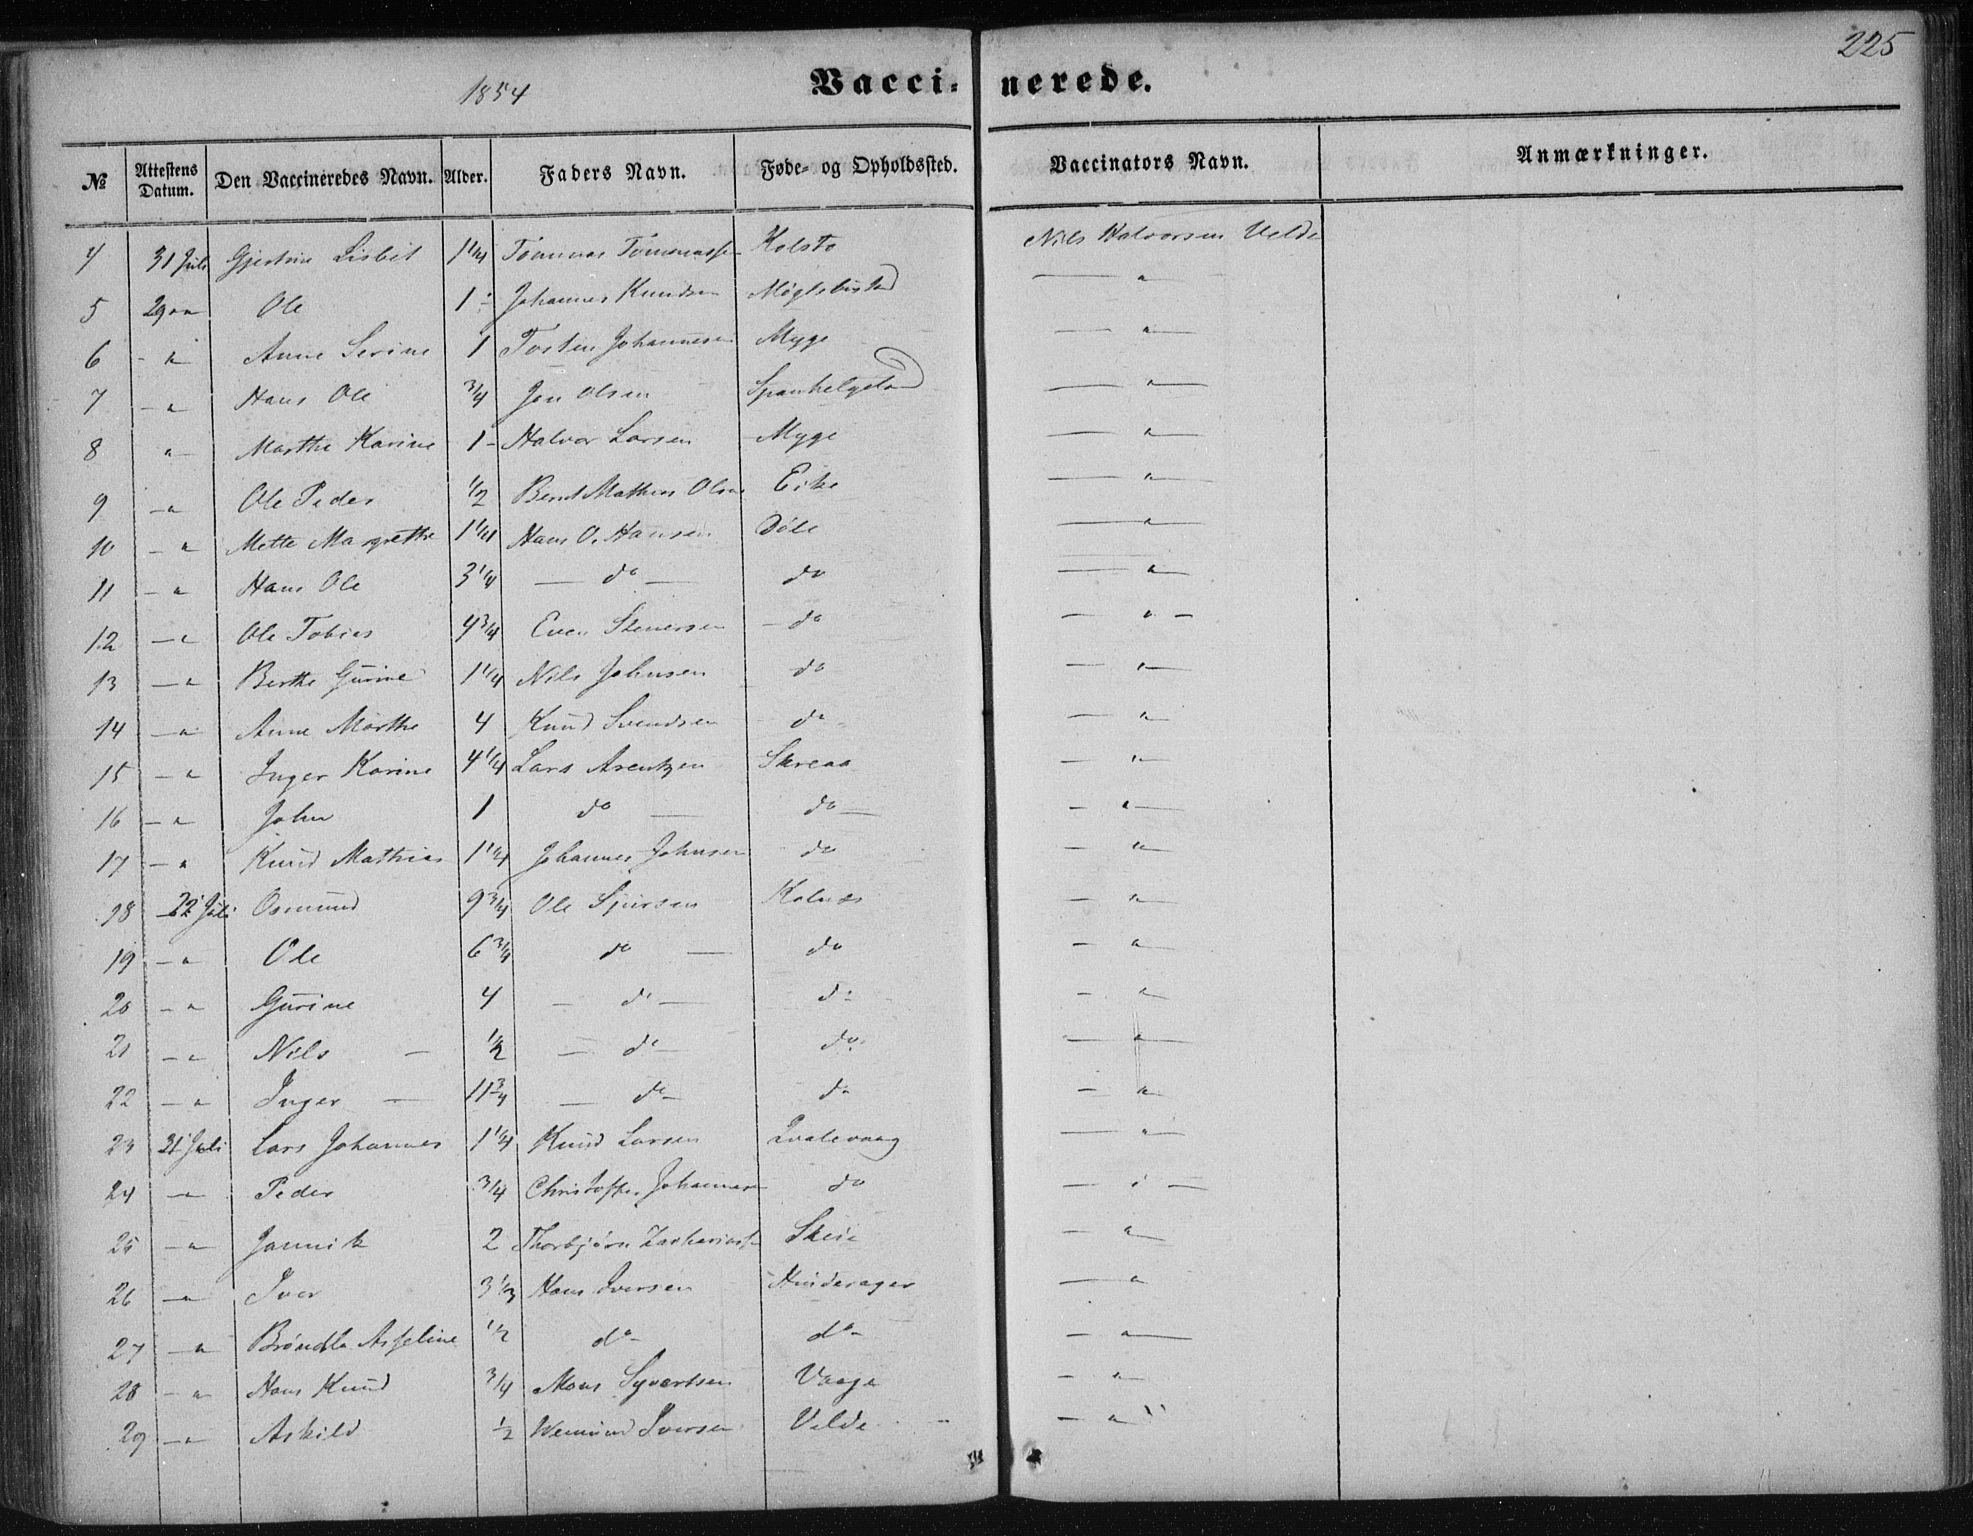 225
1854
Vacci-nerede.
№ Attestens Datum. Den Vaccineredes Navn. Alder. Faders Navn. Føde- og Opholdssted. Vaccinators Navn. Anmærkninger.
4 31 Juli Gjertine Lisbet 1 1/4 Tønnes Tønnessen Kolstø Nils Halvorsen Velde
5 29 Ole 1 Johannes Knudsen "
6 " Anne Serine 1 Tosten Johannesen Myge "
7 " Hans Ole 3/4 Jon Olsen Spanhelgeland "
8 " Marthe Karine 1 Halvor Larsen Myge "
9 " Ole Peder 1/2 Bernt Mathias Olsen Eike "
10 " Mette Margrethe 1 1/4 Hans O. Hansen Døle "
11 " Hans Ole 3 1/4 do do "
12 " Ole Tobias 4 3/4 Even Stenersen do "
13 " Berthe Gurine 1 1/4 Nils Johnsen do "
14 " Anne Marthe 4 Knud Svendsen do "
15 " Inger Karine 4 1/4 Lars Arentzen Skreaa "
16 " John 1 do do "
17 " Knud Mathias 1 1/4 Johannes Johnsen do "
18 22 Juli Osmund 9 3/4 Ole Sjursen Kolnes "
19 " Ole 6 3/4 do do "
20 " Gurine 4 do do "
21 " Nils 1/2 do do "
22 " Inger 11 3/4 do do "
23 31 Juli Lars Johannes 1 1/4 Knud Larsen Qvalevaag "
24 " Peder 3/4 Christoffer Johannesen do "
25 " Jannik 2 Thorbjørn Zachariassen Skeie "
26 " Iver 3 1/3 Hans Iversen Hinderager "
27 " Brøndla Asseline 1/2 do do "
28 " Hans Knud 3/4 Mons Syvertsen Vaage "
29 " Askild 1/2 Wemund Iversen Velde "